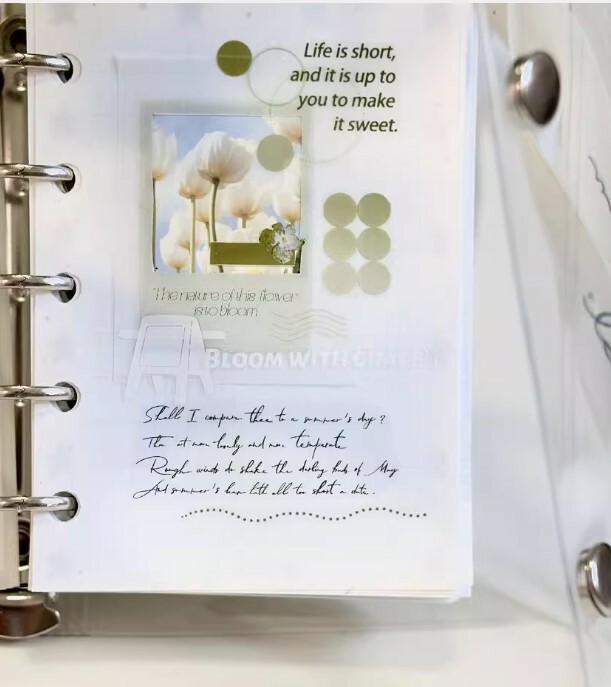 Life is short,
and it is up to
you to make
it sweet.
The nature of this flower
is to bloom
BLOOM WITH GRACE
Shall I compare thee to a summer's day?
Thou art more lovely and more temperate
Rough winds do shake the darling buds of May
And summer's lease hath all too short a date.